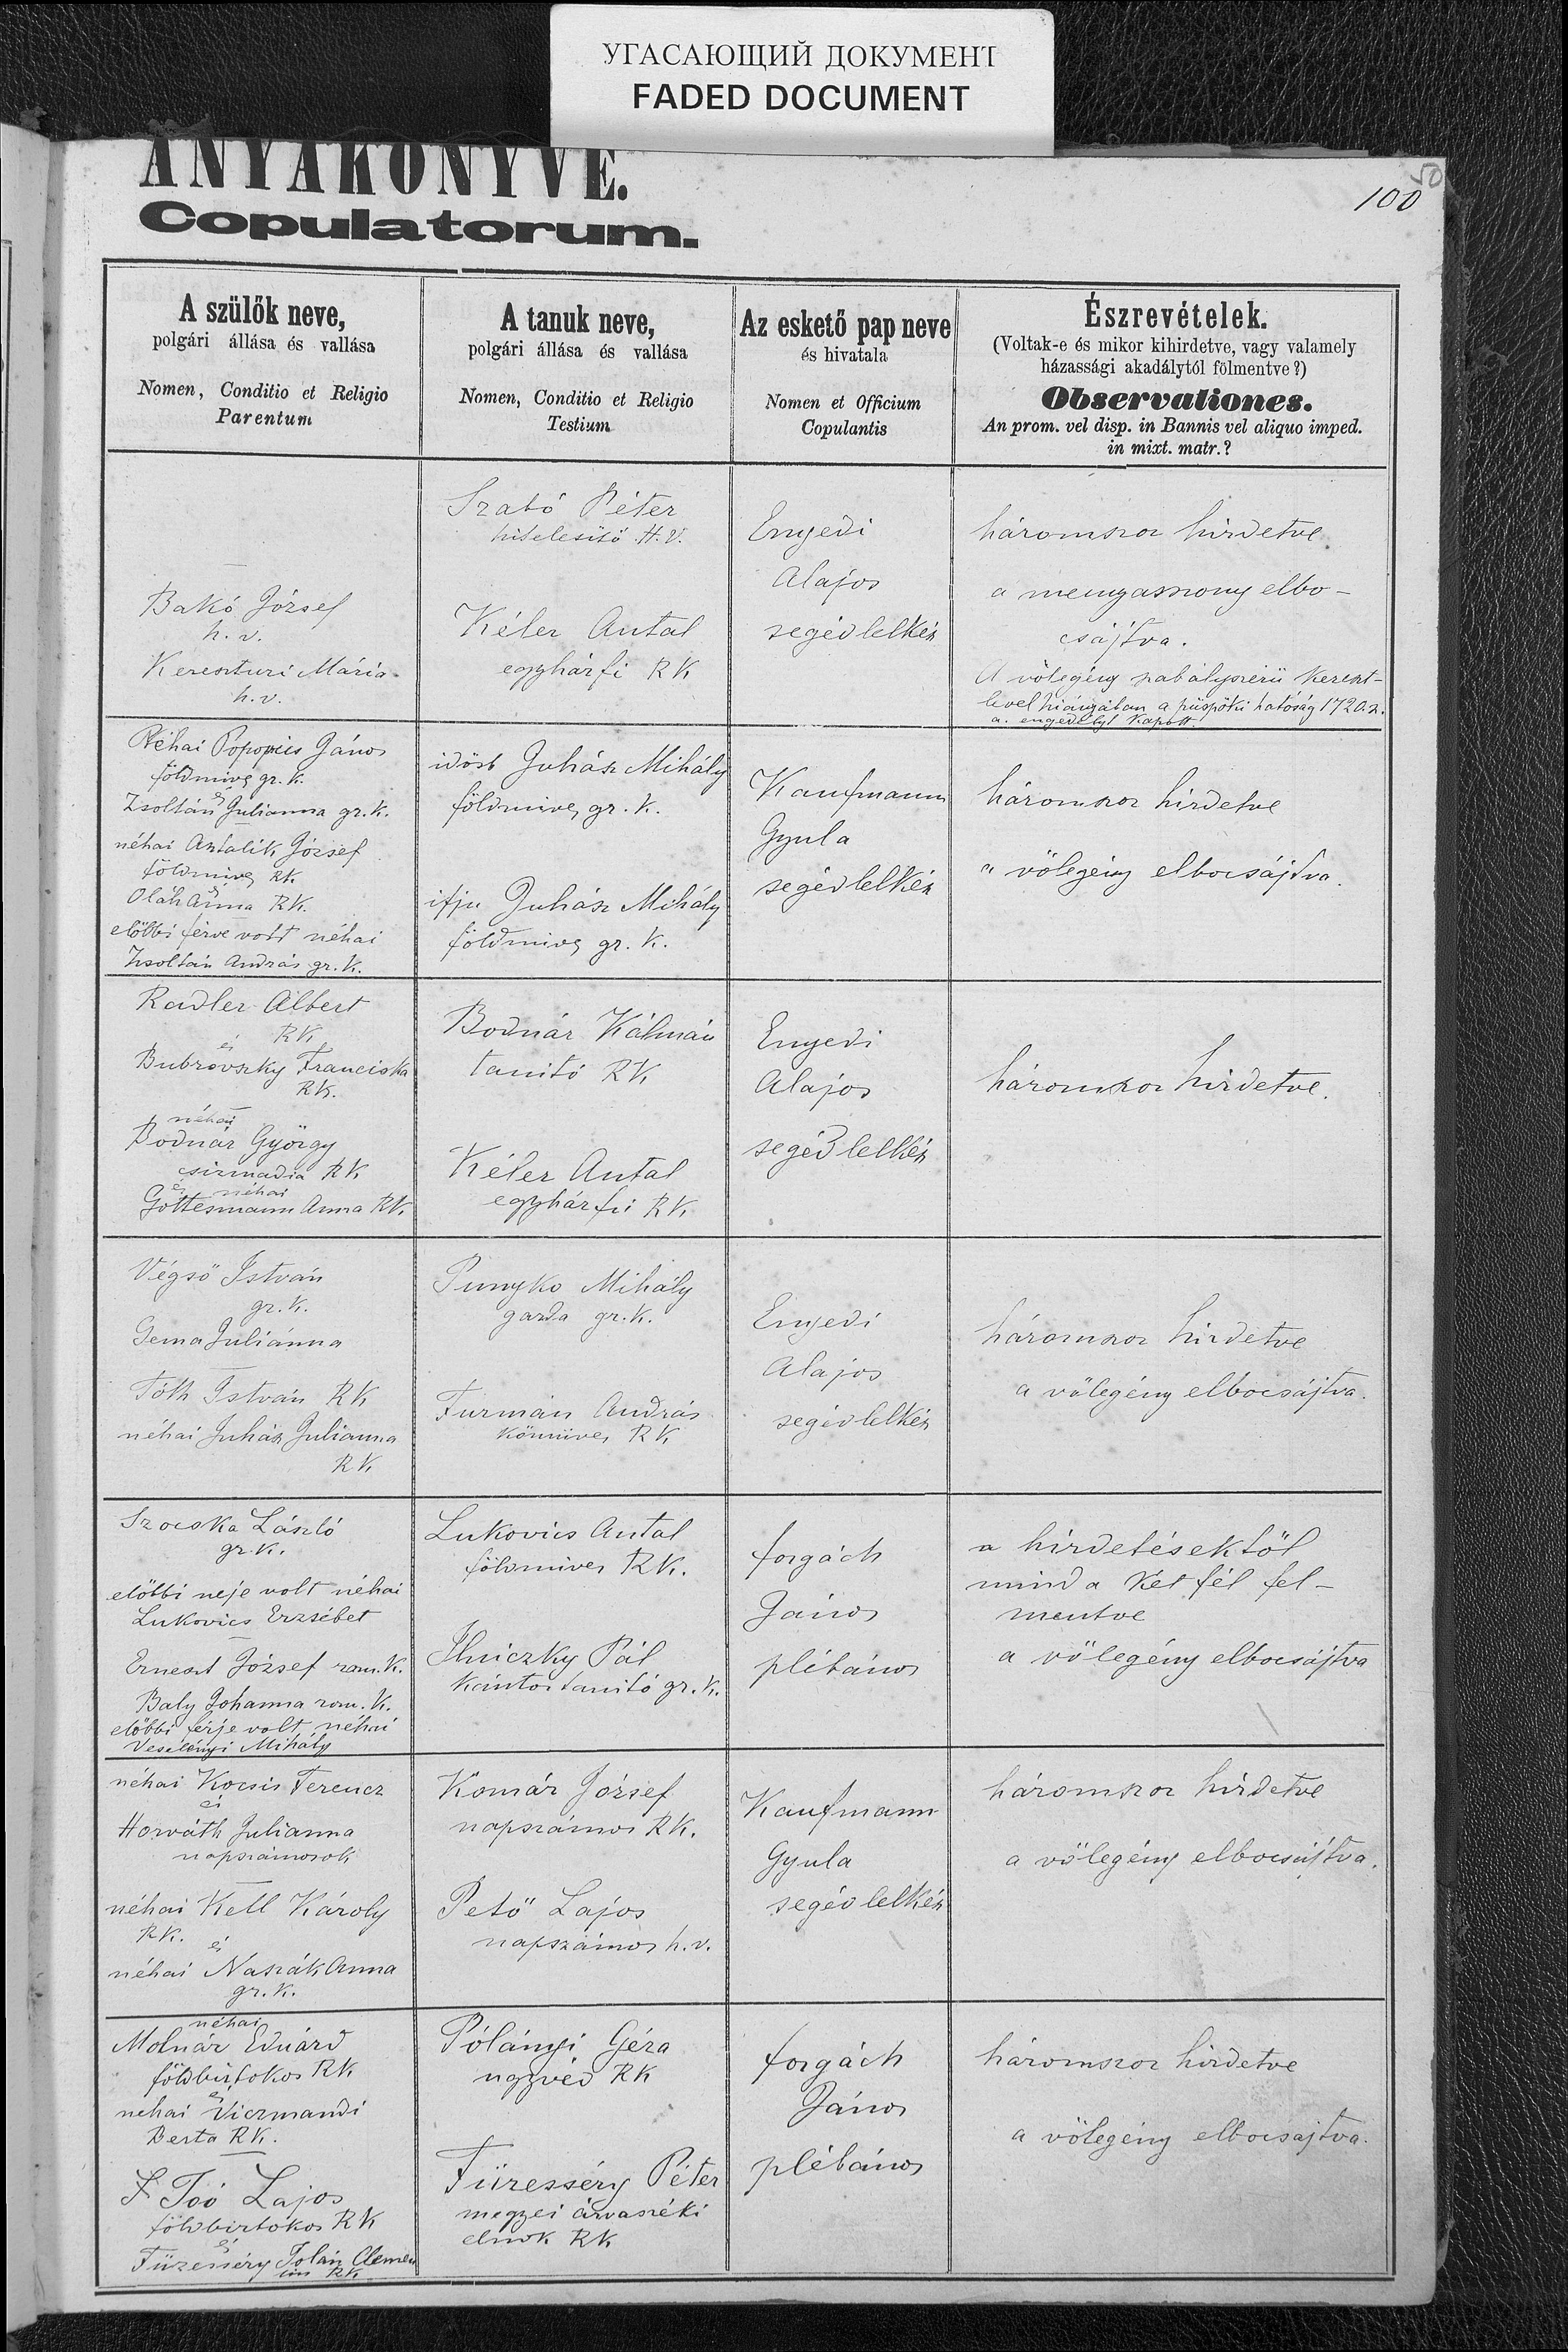 УГАСАЮЩИЙ ДОКУМЕНТ
FADED DOCUMENT
ANYAKÖNYVE.
Copulatorum.
50
100
A szülők neve,
polgári állása és vallása
Nomen, Conditio et Religio
Parentum
A tanuk neve,
polgári állása és vallása
Nomen, Conditio et Religio
Testium
Az eskető pap neve
és hivatala
Nomen et Officium
Copulantis
Észrevételek.
(Voltak-e és mikor kihirdetve, vagy valamely
házassági akadálytól fölmentve?)
Observationes.
An prom. vel disp. in Bannis vel aliquo imped.
in mixt. matr.?
—
Bakó József
h. v.
Kereszturi Mária
h. v.
Szabó Péter
hitelesitő H. V.
Kéler Antal
egyházfi RK
Enyedi
Alajos
segédlelkész
háromszor hirdetve.
a menyasszony elbo-
csájtva.
A völegény szabályszerü kereszt-
level hiányában a püspöki hatóság 1720. sz.
a. engedélyt kapott.
Néhai Popovics János
földmives gr. k.
és
Zsoltán Julianna gr. k.
—
néhai Antalik József
földmives RK.
és
Oláh Anna RK.
előbbi férve volt néhai
Zsoltán András gr. k.
idősb Juhász Mihály
földmives gr. k.
ifju Juhász Mihály
földmives gr. k.
Kaufmann
Gyula
segédlelkész
háromszor hirdetve
a völegény elbocsájtva.
Radler Albert
RK
és
Bubrovszky Franciska
RK.
—
néhai
Bodnár György
csizmadia RK
és néhai
Gottesmann Anna RK.
Bodnár Kálmán
tanitó RK
Kéler Antal
egyházfi RK
Enyedi
Alajos
segédlelkész
háromszor hirdetve.
Végső István
gr. k.
Gema Juliánna
—
Tóth István RK
néhai Juhász Julianna
RK
Punyko Mihály
gazda gr. k.
Furman András
kőmüves RK
Enyedi
Alajos
segédlelkész
háromszor hirdetve
a völegény elbocsájtva.
Szocska László
gr. k.
előbbi neje volt néhai
Lukovics Erzsébet
—
Erneszt József rom. k.
Baly Johanna rom. k.
előbbi férje volt néhai
Veselényi Mihály
Lukovics Antal
földmives RK.
Ilniczky Pál
kántor tanitó gr. k.
forgách
János
plébános
a hirdetésektől
mind a két fél fel-
mentve
a völegény elbocsájtva
néhai Kocsis Ferencz
és
Horváth Julianna
napszámosok
—
néhai Kell Károly
RK.
és
néhai Naszák Anna
gr. k.
Komár József
napszámos RK.
Pető Lajos
napszámos h. v.
Kaufmann
Gyula
segédlelkész
háromszor hirdetve
a völegény elbocsájtva.
néhai
Molnár Eduárd
földbirtokos RK
és
nehai Viczmandi
Berta RK.
—
Toó Lajos
földbirtokos RK
és
Füzesséry Jolán Clemen
RK
Pólányi Géza
ugyvéd RK
Füzesséry Péter
megyei árvaszéki
elnök RK
forgách
János
plébános
háromszor hirdetve
a völegény elbocsajtva.